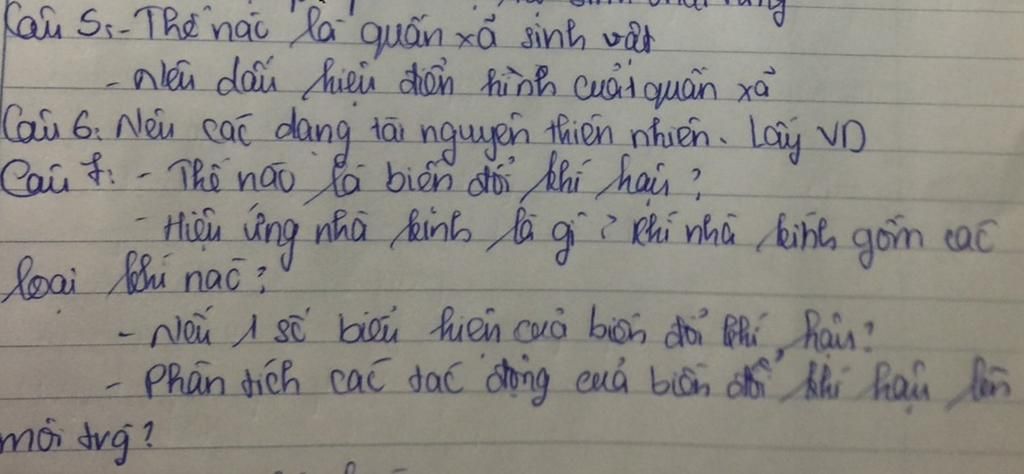 Câu 5: - Thế nào là quần xã sinh vật
- Nêu dấu hiệu điển hình của quần xã
Câu 6: Nêu các dạng tài nguyên thiên nhiên. Lấy VD
Câu 7: - Thế nào là biến đổi khí hậu?
- Hiệu ứng nhà kính là gì? Khí nhà kính gồm các
loại khí nào?
- Nêu 1 số biểu hiện của biến đổi khí hậu?
- Phân tích các tác động của biến đổi khí hậu lên
môi trg?